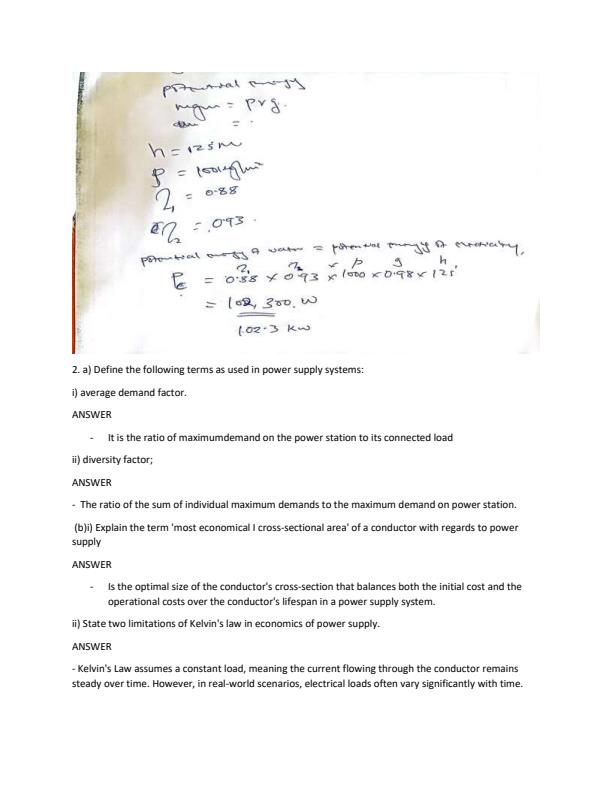 potential energy
mgm = ρvg.
= .
h = 125m
ρ = 1001kg/m³
η₁ = 0.88
η₂ = .093.
potential energy of water = potential energy of electricity,
η₁ η₂ × ρ g h,
P = 0.88 × 0.93 × 1000 × 0.98 × 125
= 102,300. W
102.3 KW
2. a) Define the following terms as used in power supply systems:
i) average demand factor.
ANSWER
- It is the ratio of maximumdemand on the power station to its connected load
ii) diversity factor;
ANSWER
- The ratio of the sum of individual maximum demands to the maximum demand on power station.
(b)i) Explain the term 'most economical I cross-sectional area' of a conductor with regards to power
supply
ANSWER
- Is the optimal size of the conductor's cross-section that balances both the initial cost and the
operational costs over the conductor's lifespan in a power supply system.
ii) State two limitations of Kelvin's law in economics of power supply.
ANSWER
- Kelvin's Law assumes a constant load, meaning the current flowing through the conductor remains
steady over time. However, in real-world scenarios, electrical loads often vary significantly with time.